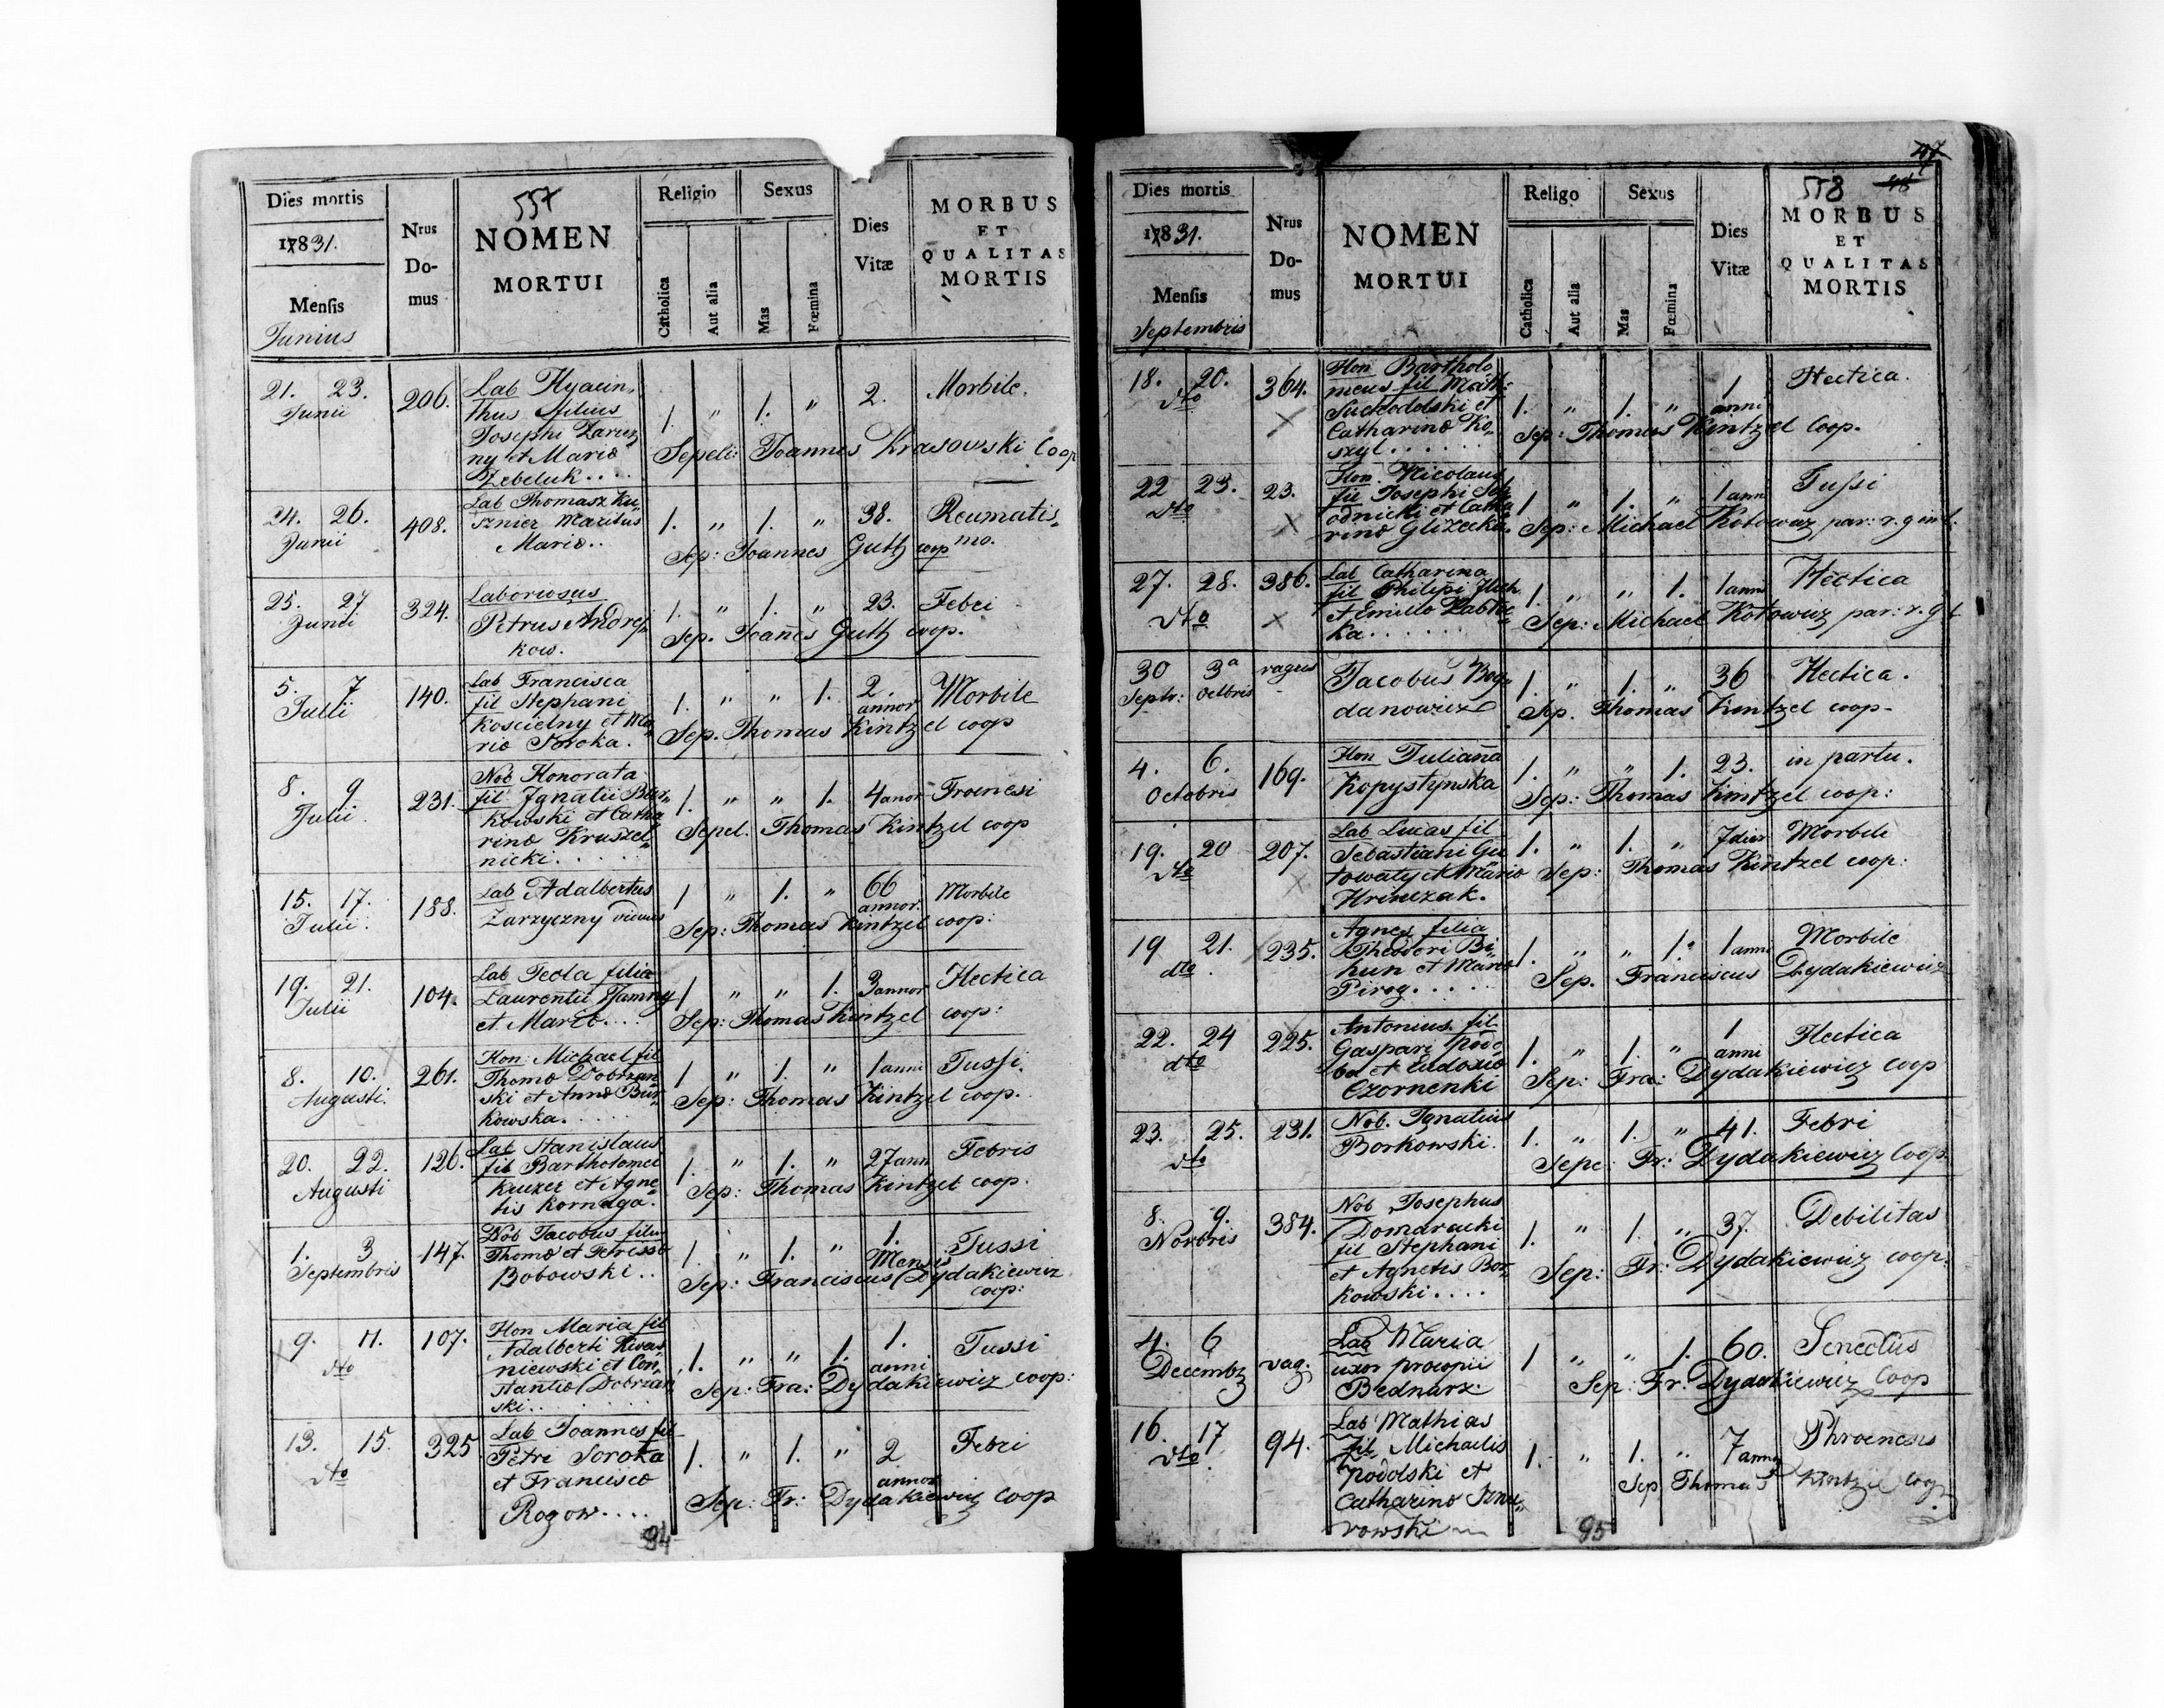 Dies mortis
17831.
Mensis
Junius
Nrus
Do-
mus
557
NOMEN
MORTUI
Religio
Catholica
Aut alia
Sexus
Mas
Fœmina
Dies
Vitæ
MORBUS
ET
QUALITAS
MORTIS
21. 23.
Junii
206.
Lab Hyacin„
thus filius
Josephi Zarzez
ny et Maria
Zebeluk....
1. „ 1. „ 2. Morbile.
Sepeli: Joannes Krasowski Coop
24. 26.
Junii
408.
Lab Thomasz Ku„
sznier Maritus
Maria..
1. „ 1. „ 38. Reumatis„
mo.
Sep: Joannes Guttz coop
25. 27
Junii
324.
Laboriosus
Petrus Andrej„
kow.
1. „ 1. „ 23. Febri
Sep. Joañes Guttz coop.
5. 7
Julii
140.
Lab Francisca
fil Stephani
Koscielny et Ma„
ria Soroka.
1. „ „ 1. 2.
annor
Morbile
Sep. Thomas Kintzel coop
8. 9
Julii
231.
Nob Honorata
fil Ignatii Bor„
kowski et Catha„
rina Kruszel„
nicki.....
1. „ „ 1. 4 anor Froenesi
Sepel. Thomas Kintzel coop
15. 17.
Julii.
188.
Lab Adalbertus
Zarzyczny viduus
1 „ 1. „ 66
annor.
Morbile
Sep: Thomas Kintzel coop:
19. 21.
Julii
104.
Lab Tecla filia
Laurentii Tjamny
et Maria...
1 „ „ 1. 3 annor Hectica
Sep: Thomas Kintzel coop:
8. 10.
Augusti.
261.
Hon: Michael fil
Thoma Dobrzan
ski et Anna Bur„
kowska....
1 „ 1. „ 1 anni Tussi.
Sep: Thomas Kintzel coop.
20. 22.
Augusti
126.
Lab Stanislaus
fil Bartholomei
Kuczer et Agne„
tis Kornaga.
1. „ 1. „ 27 ann Febris
Sep: Thomas Kintzel coop.
1. 3
Septembris
147.
Nob Jacobus filiu
Thoma et Teressa
Bobowski..
1. „ 1. „ 1.
Mensis
Tussi
Sep: Franciscus Dydakiewicz
coop:
9. 11.
dto
107.
Hon Maria fil
Adalberti Kwas„
niewski et Con„
stantia Dobrzan
ski........
1. „ „ 1. 1.
anni
Tussi
Sep: Fra: Dydakiewicz coop:
13. 15.
dto
325
Lab Joannes fil
Petri Soroka
et Francisca
Rogow....
1. „ 1. „ 2
annor
Febri
Sep: Fr: Dydakiewicz Coop
94
47
48
Dies mortis
17831.
Mensis
Septembris
Nrus
Do-
mus
NOMEN
MORTUI
Religo
Catholica
Aut alia
Sexus
Mas
Fœmina
Dies
Vitæ
558
MORBUS
ET
QUALITAS
MORTIS
18. 20.
dto
364.
Hon Bartholo
meus fil Math:
Suchodolski et
Catharina Ko„
szyl......
1. „ 1. „ 1
anni
Hectica.
Sep: Thomas Kintzel Coop.
22 23.
dto
23.
Hon. Nicolaus
fil Josephi
odnicki et Catha
rina Glizecka.
1 „ 1. „ 1 anni Tussi
Sep: Michael Kotowicz par: r. g
27. 28.
dto
386.
Lab Catharina
fil Philipi
et Emilla
ka......
1. „ „ 1. 1 anni Hectica
Sep: Michael Kotowicz par: r. g
30 3a
Septr: Octbris
vagus
Jacobus Bog„
danowicz
1. „ 1. „ 36 Hectica.
Sep. Thomas Kintzel coop-
4. 6.
Octobris
169.
Hon Juliaña
Kopystynska
1. „ „ 1. 23. in partu.
Sep: Thomas Kintzel coop:
19. 20
dto
207.
Lab Lucas fil
Sebastiani Gu
towaty et Maria
Hrinczak.
1. „ 1. „ 7 dier Morbile
Sep: Thomas Kintzel coop:
19 21.
dto.
235.
Agnes filia
Theodori Bi„
hun et Maria
Pirog.....
1. „ „ 1. 1 anni Morbile
Sep. Franciscus Dydakiewicz
22. 24
dto
225.
Antonius. fil.
Gaspari Podo
ba et Eudoxia
Czornenki
1. „ 1. „ 1
anni
Hectica
Sep: Fra: Dydakiewicz coop
23. 25.
dto
231.
Nob. Ignatius
Borkowski.
1. „ 1. „ 41. Febri
Sepe: Fr: Dydakiewicz Coop
8. 9.
Novbris
384.
Nob Josephus
Domaracki
fil Stephani
et Agnetis Bor„
kowski....
1. „ 1. „ 37. Debilitas
Sep: Fr: Dydakiewicz coop:
4. 6
Decembr
vag.
Lab Maria
uxor procopii
Bednarz
1 „ „ 1. 60. Senectus
Sep: Fr: Dydakiewicz Coop
16. 17
dto.
94.
Lab Mathias
fil Michaelis
Podolski et
Catharina
rowski
1. „ 1. „ 7 anno Phroenesis
Sep Thomas Kintzel Coop
95